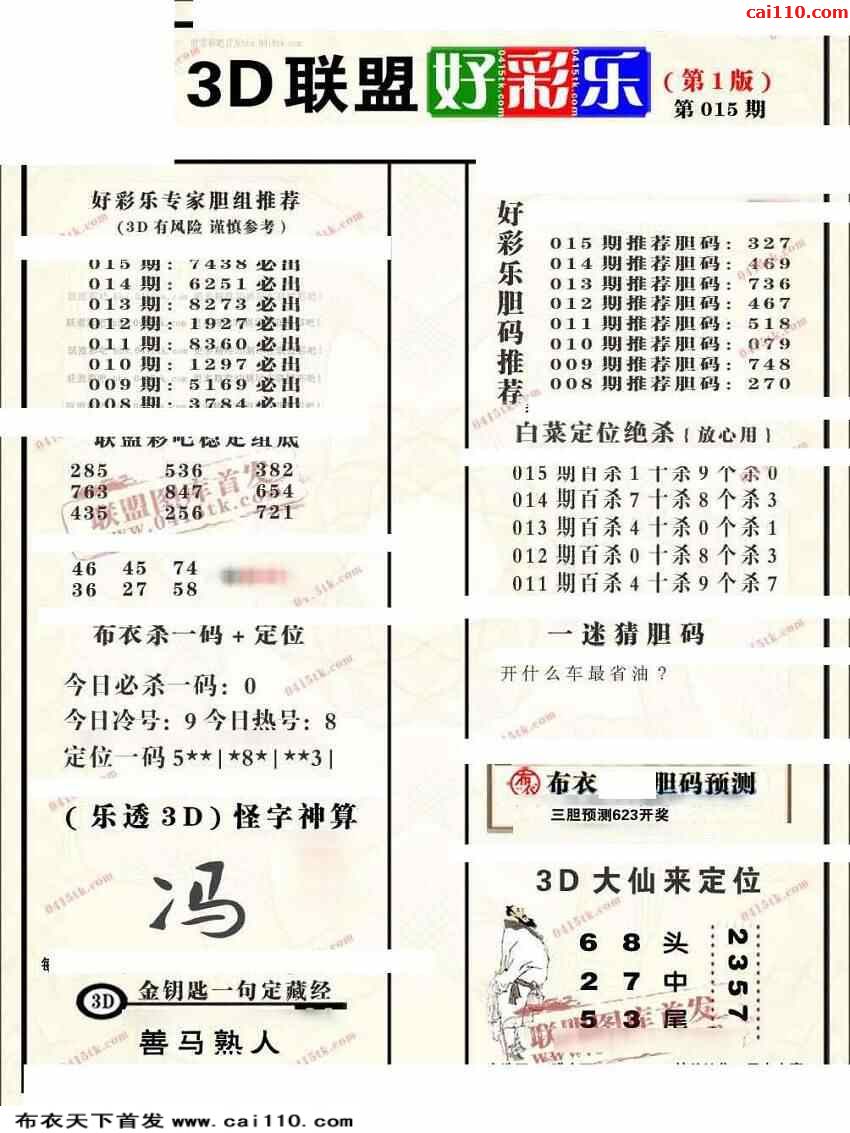 cai110.com
3D联盟 好彩乐 (第1版)
第015期
好彩乐专家胆组推荐
(3D有风险 谨慎参考)
015期: 7438必出
014期: 6251必出
013期: 8273必出
012期: 1927必出
011期: 8360必出
010期: 1297必出
009期: 5169必出
008期: 3784必出
联盟彩吧稳定组底
285 536 382
763 847 654
435 256 721
联盟图库首发
www.0415tk.com
46 45 74
36 27 58
布衣杀一码+定位
今日必杀一码: 0
今日冷号: 9 今日热号: 8
定位一码 5**|*8*|**3|
(乐透3D)怪字神算
冯
3D 金钥匙一句定藏经
善马熟人
好彩乐胆码推荐
015期推荐胆码: 327
014期推荐胆码: 469
013期推荐胆码: 736
012期推荐胆码: 467
011期推荐胆码: 518
010期推荐胆码: 079
009期推荐胆码: 748
008期推荐胆码: 270
白菜定位绝杀{放心用}
015期百杀1十杀9个杀0
014期百杀7十杀8个杀3
013期百杀4十杀0个杀1
012期百杀0十杀8个杀3
011期百杀4十杀9个杀7
一迷猜胆码
开什么车最省油?
布衣 布衣 胆码预测
三胆预测623开奖
3D大仙来定位
6 8 头
2 7 中
5 3 尾
2357
联盟图库首发
布衣天下首发 www.cai110.com